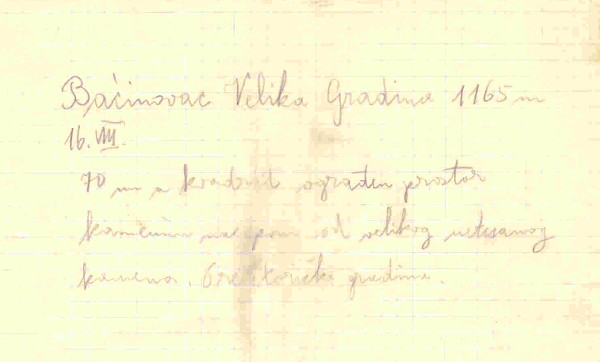 Baćinovac Velika Gradina 1165 m
16. VIII.
70 m u kvadrat ograđen prostor
od velikog netesanog
kamena. gradina.